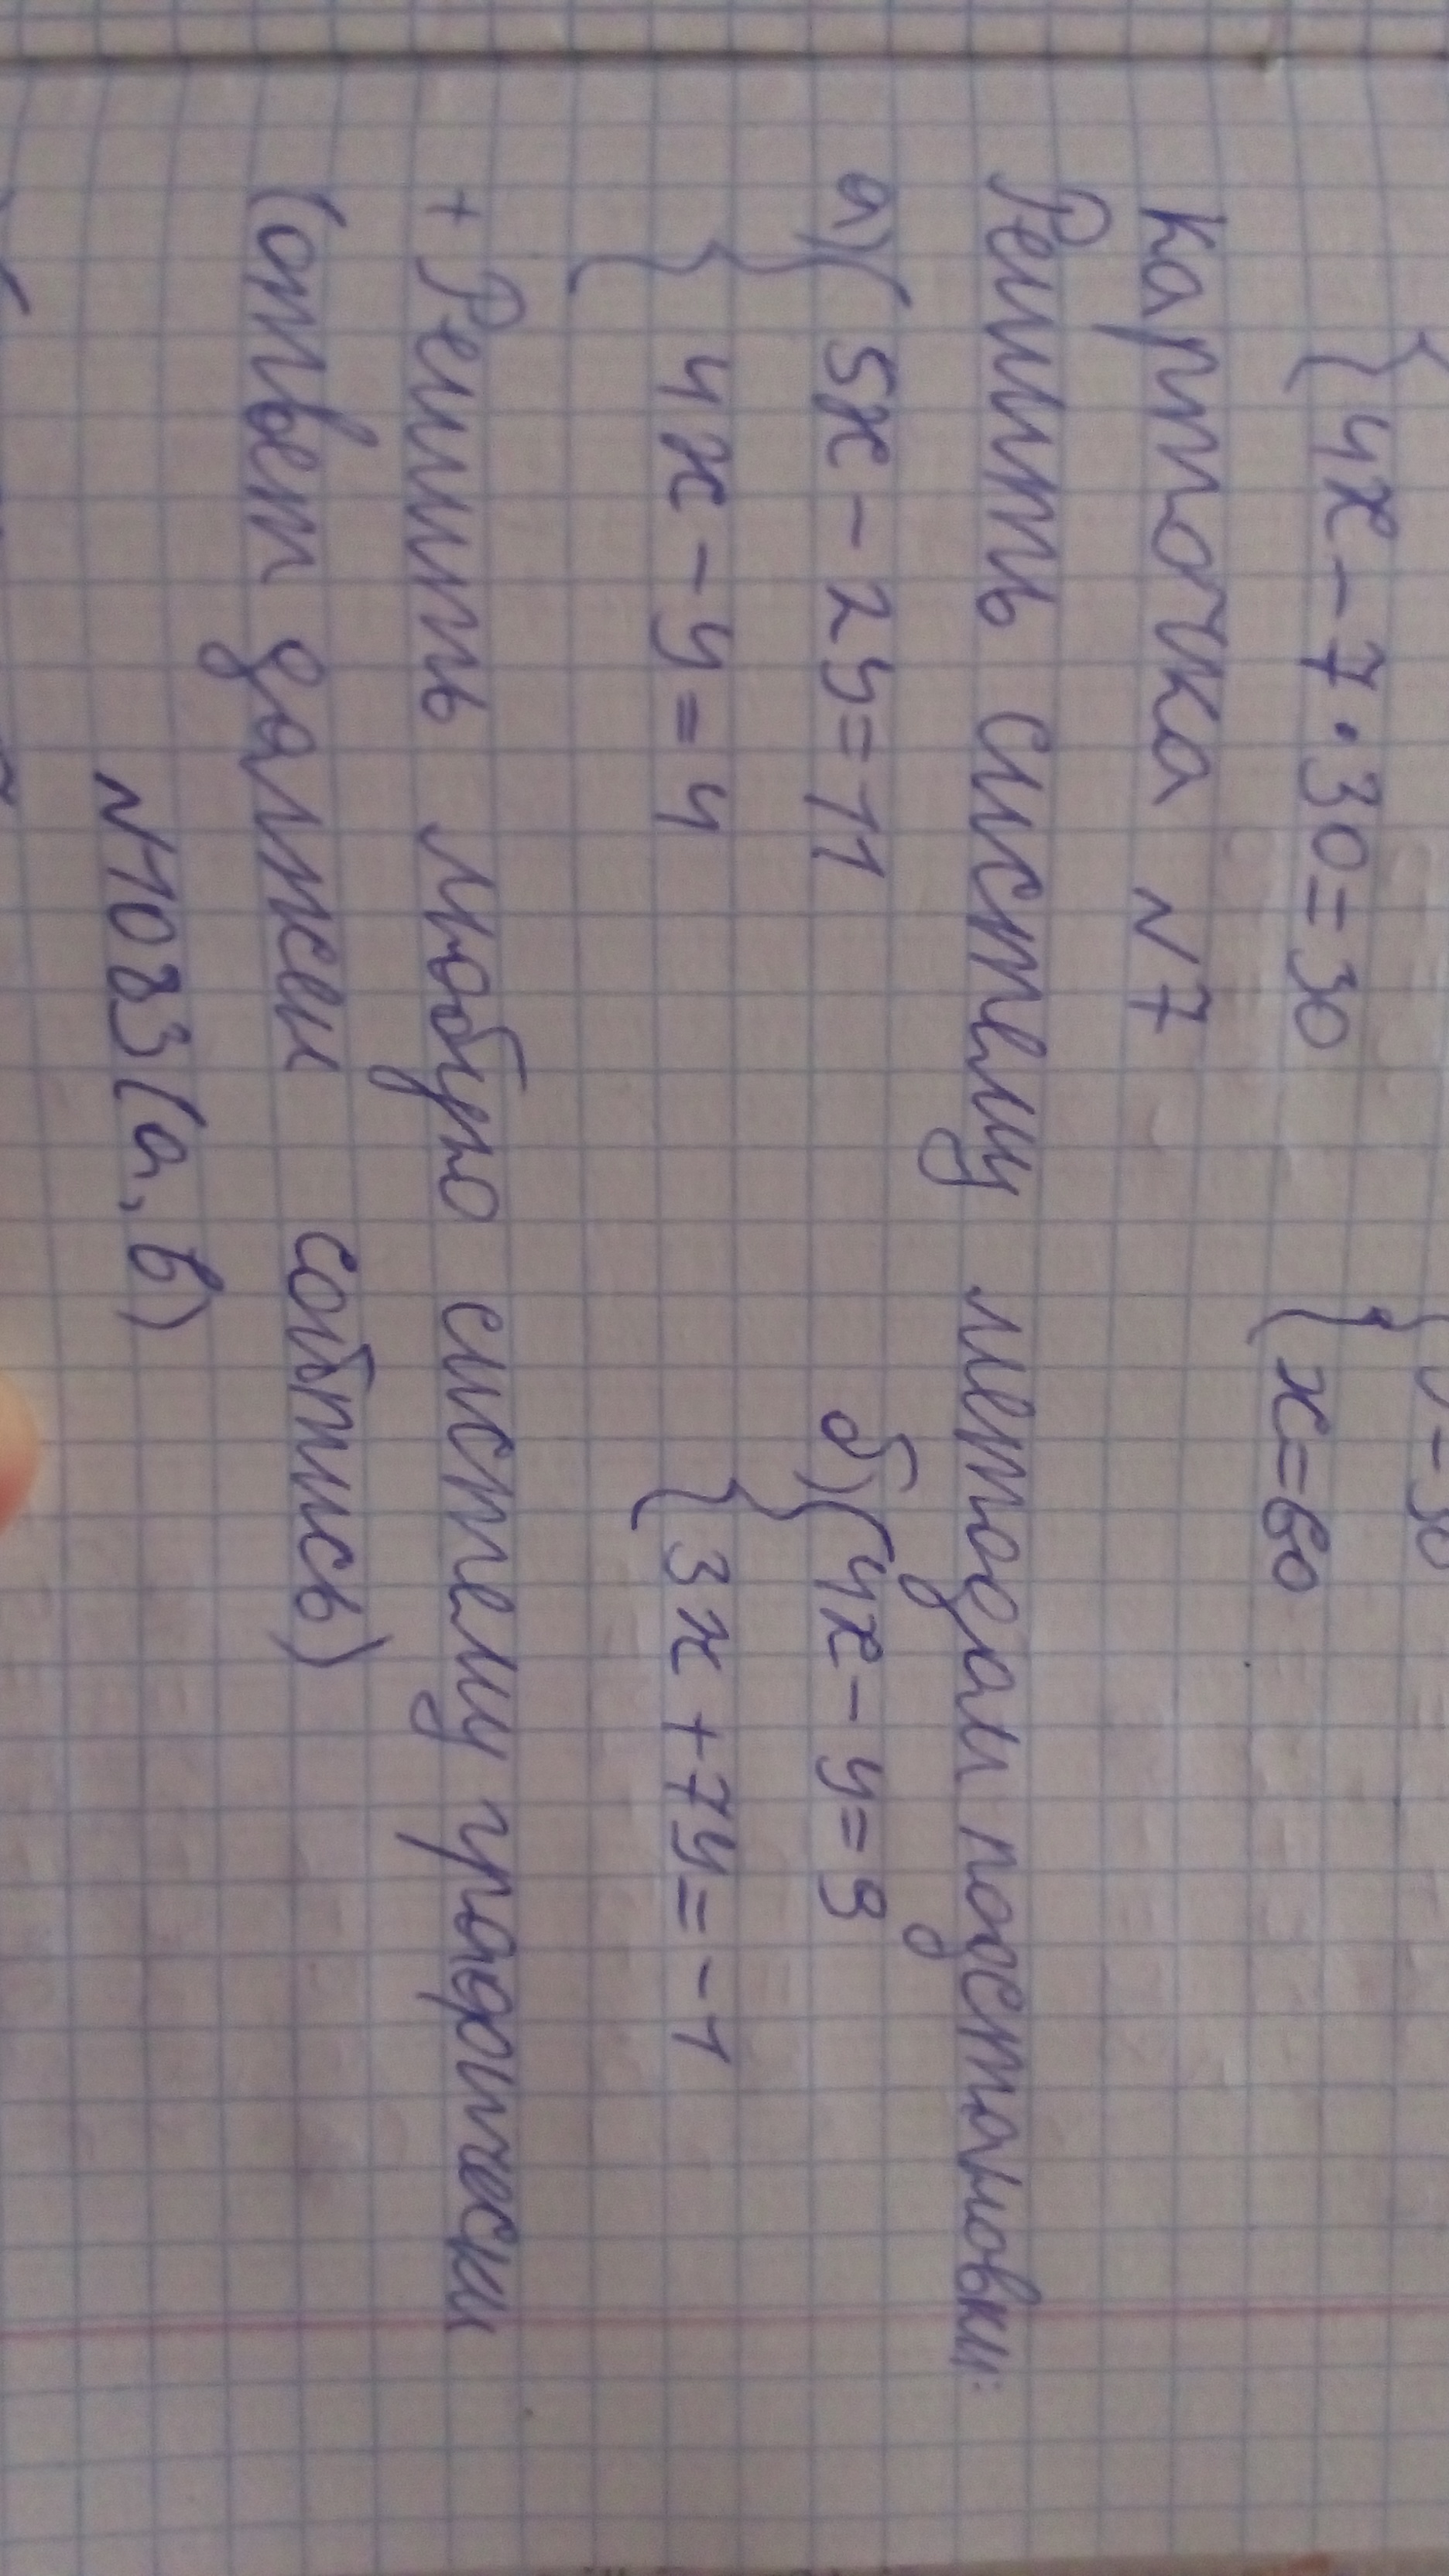 {4x - 7 · 30 = 30
{x = 60
Карточка N7
Решить систему методам подстановки:
а) { 5x - 2y = 11
4x - y = 4
б) { 4x - y = 9
3x + 7y = -1
+ Решить любую систему графически
(ответ должен сойтись)
N1083 (а, в)